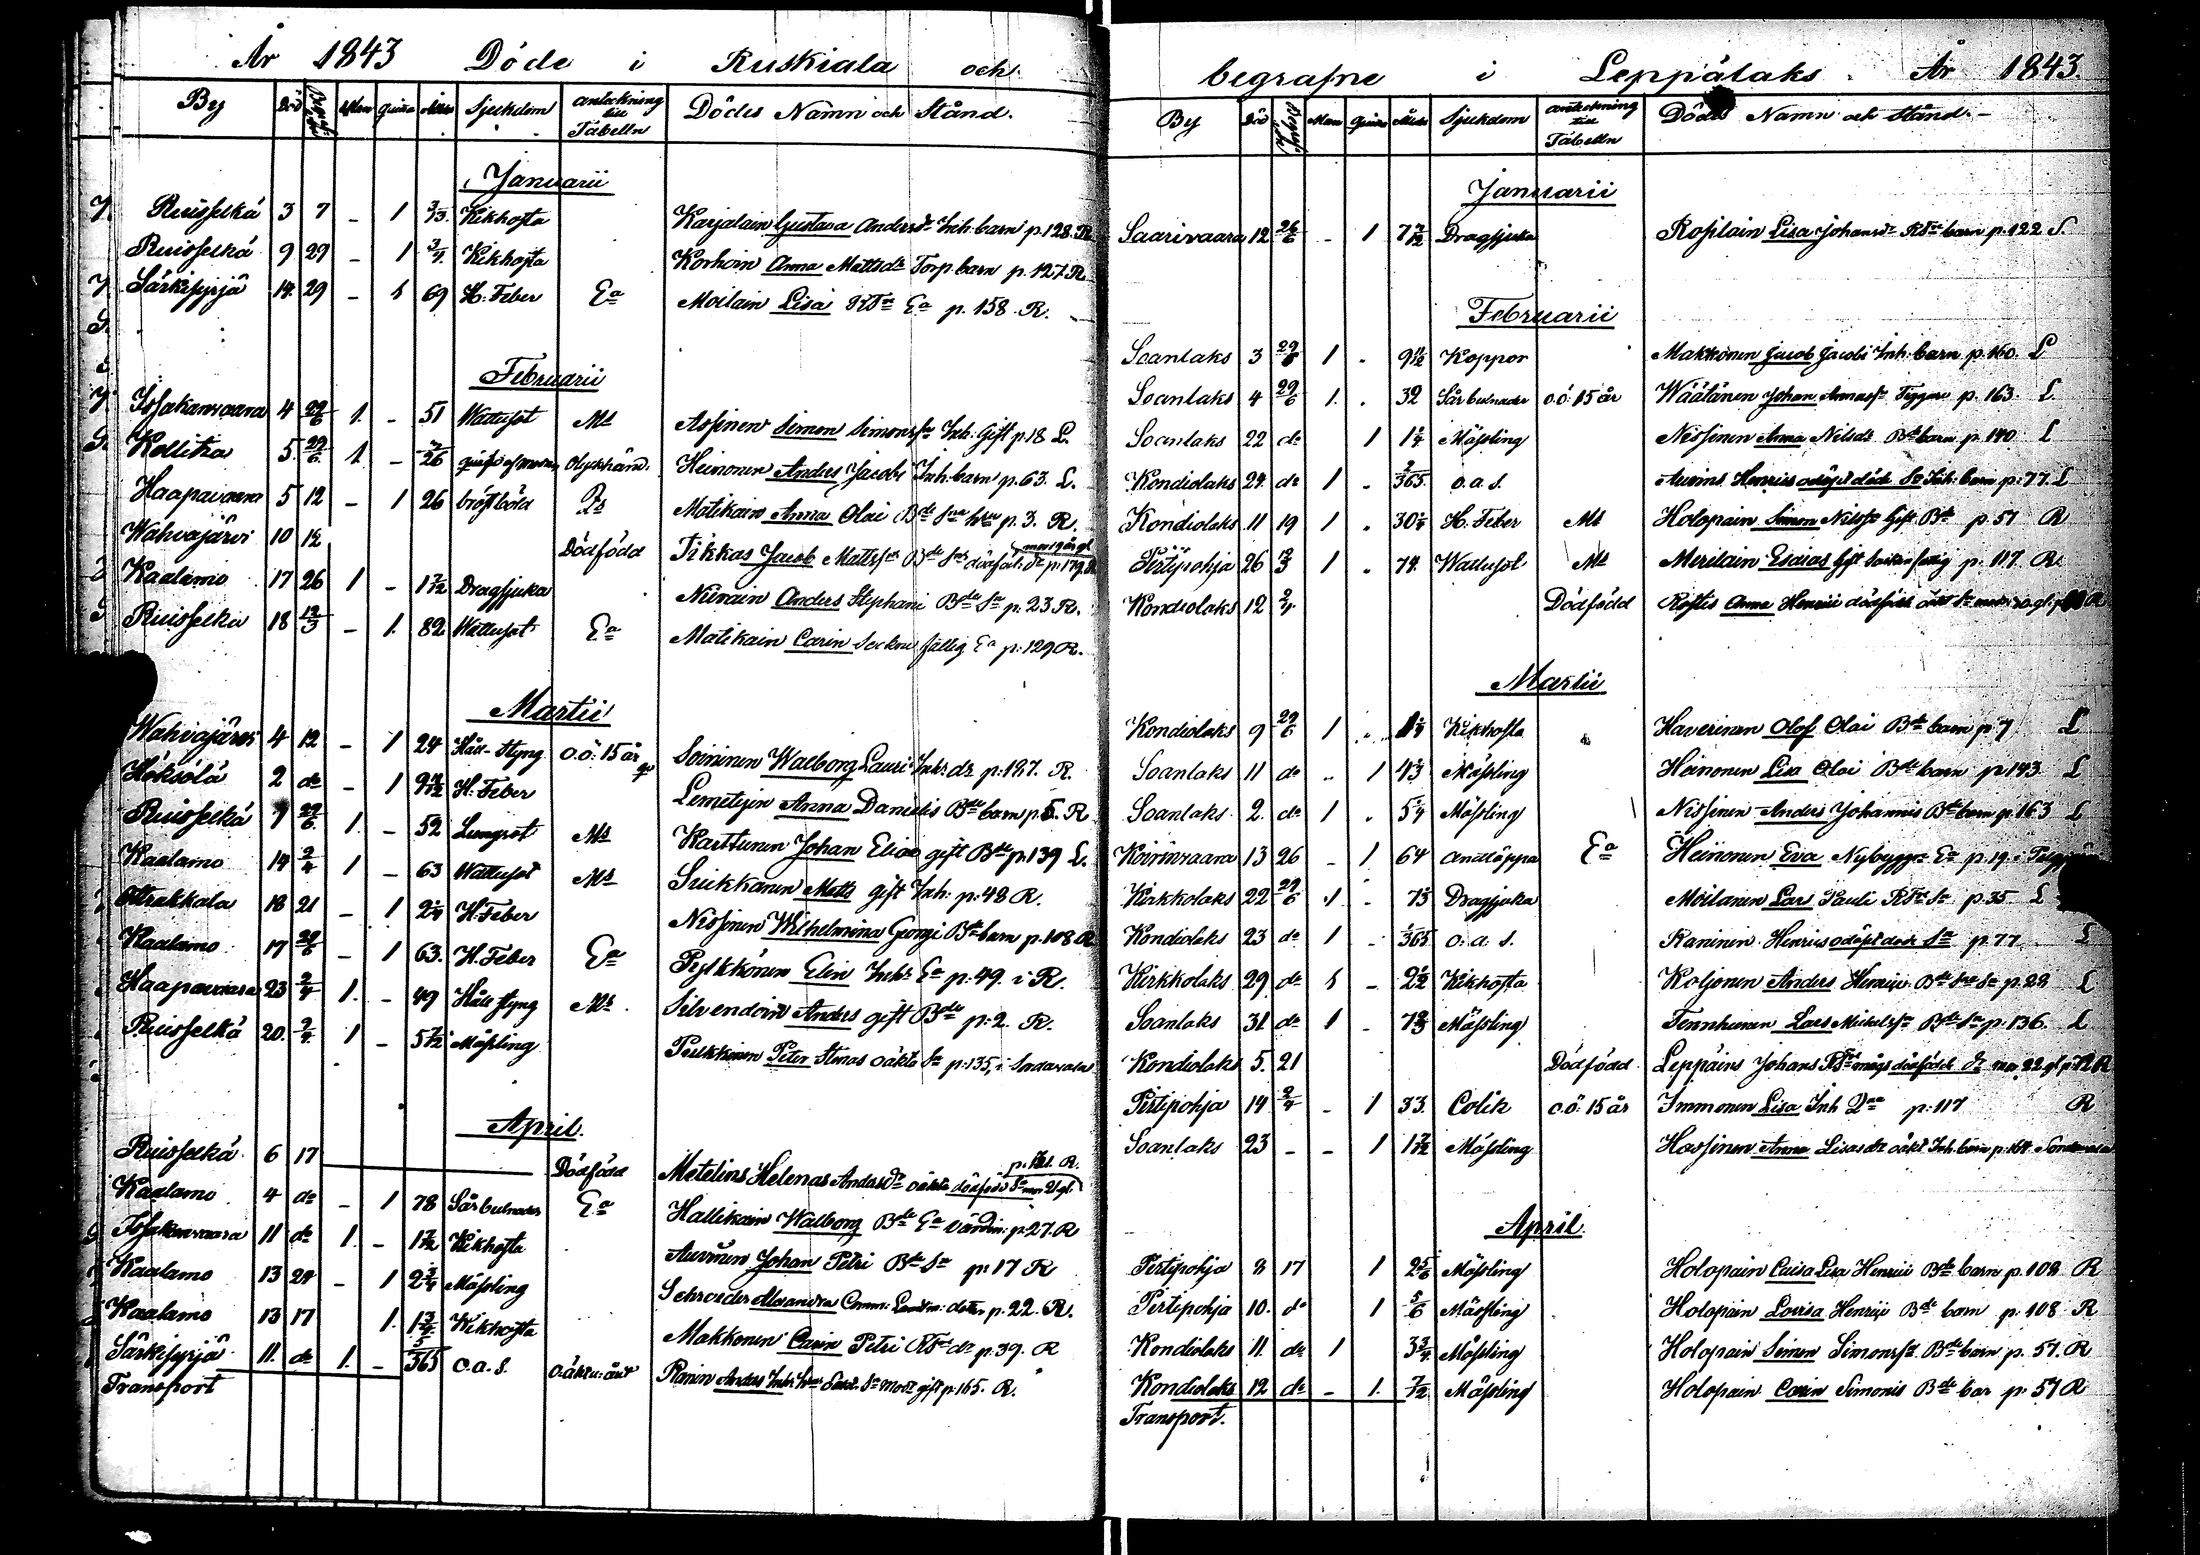 År 1843 Döde i Ruskiala och
By Död Begr: Man Qvin Ålder Sjukdom anteckning till Tabelln Dödes Namn och Stånd.
Januarii
Ruisselkä 3 7 - 1 3/13 Kikhosta Karjalain Gustava Andersdr Inh: barn p. 128. R
Ruisselkä 9 29 - 1 3/4 Kikhosta Korhoin Anna Mattsdr Torp. barn p. 127 R
Särkisyrjä 14 29 - 1 69 H. Feber Ea Moilain Lisa Ea p. 158. R.
Februarii
Issakanvaara 4 29/6 1 - 51 Wattusot Ms Assinen Simon Simonss: Inh: Gift p 18 L.
Kollitka 5 29/6 1 - Heinonen Anders Jacobi Inh: barn p. 63. L.
Haapavaara 5 12 - 1 26 bröstböld Matikain Anna Olai Bde p. 3. R.
Wahvajärvi 10 12 Dödfödd Tikkas Jacob Mattss: Bde
Kaalamo 17 26 1 - 1 7/12 Dragsjuka Niirain Anders Stephani Bde Sn p. 23 R.
Ruisselkä 18 12/3 - 1 82 Wattusot Ea Matikain Carin Socken fattig Ea p: 129 R.
Martii
Wahvajärvi 4 12 - 1 24 Håll-Styng o.ö: 15 år Soininen Walborg Lauri Inh: dr p: 187. R.
2 do - 1 H. Feber Lemetyin Anna Danielis Bde barn p. 5. R
Ruisselkä 7 29/6 1 - 52 Lungsot Ms Karttunen Johan Elias gift Bde p. 139 L.
Kaalamo 14 2/4 1 - 63 Wattusot Ms Siikkanen Matts gift Inh: p: 48 R.
Otrakkala 18 21 - 1 2 1/4 H. Feber Nissinen Wilhelmina Georgi Bde barn p. 108 R
Kaalamo 17 29/6 - 1 63. H. Feber Ea Pylkkönen Elin Inh: Ea p: 49. i R.
Haapavaara 23 2/4 1. - 49 Håll styng Ms. Silvendoin Anders gift Bde p: 2. R.
Ruisselkä 20. 2/4 1 - 5 7/12 Mässling Pulkkinen Peter oäkta Sn p: 135, i Sordavala
April.
Ruisselkä 6 17 Dödfödd Metelins Helenas Andersdr oäkta dödfödd Sn mor 21 gl. p. 161. R.
Kaalamo 4 do - 1 78 Sår bulnader Ea Hallikain Walborg Bde Ea Värdin: p: 27. R
Issakanvaara 11 do 1. - 1 7/12 Kikhosta Auvinen Johan Petri Bde Sn p: 17 R
Kaalamo 13 24 - 1 2 3/4 Mässling Schroeder Alexandra Comm: Landm: dotter p. 22. R.
Kaalamo 13 17 1. 1 3/4 Kikhosta Makkonen Carin Petri dr p. 39. R
Särkisyrjä 11. do 1. - 5/365 o.a.s. Ronin Anders gift p. 165. R.
Transport
begrafne i Leppälaks År 1843.
By Död Begr: Man Qvin Ålder Sjukdom anteckning till Tabelln Dödes Namn och Stånd -
Januarii
Saarivaara 12 26/6 - 1 7 7/12 Dragsjuka Rossilain Lisa Johansdr barn p. 122 S.
Februarii
Soanlaks 3 29/6 1 - Koppor Makkonen Jacob Jacobi Inh: barn p. 160. L
Soanlaks 4 29/6 1. . 32 Sår bulnader o.ö: 15 år Wäätänen Johan Annass: Tiggare p. 163. L
Soanlaks 22 do 1 1 1/4 Mässling Nissinen Anna Nilsdr Bde barn p. 140 L
Kondiolaks 24. do 1 . 2/365. o.a.s. Auvins Henrics odöpt döde Sn Inh: barn p: 77. L
Kondiolaks 11 19 1 . 30 1/4 H. Feber Ms Holopain Simon Nilss: Gift Bde p. 57 R
Pertipohja 26 12/3 1 . 74. Wattusot Ms Meritain Esaias Gift Socken fattig p. 117. R.
Kondiolaks 12 2/4 Dödfödd Anna Henrici dödfödd
Martii
Kondiolaks 9 29/6 1 . Kikhosta Haverinen Olof Olai Bde barn p 7 L
Soanlaks 11 do . 1 4 1/3 Mässling Heinonen Lisa Olai Bde barn p. 143 L
Soanlaks 2. do 1 . 5 1/4 Mässling Nissinen Anders Johannis Bde barn p. 163 L
Koirinvaara 13 26 - 1. 64 Andtäppa Ea Heinonen Eva Nybygg: Ea p. 19. i
Kirkkolaks 22 29/6 1 - Dragsjuka Moilanen Lars Pauli Sn p. 35 L
Kondiolaks 23 do 1 - 365 o. a. s. Kaninen Henrics odöpt död Sn p. 77 L
Kirkkolaks 29 do 1 - Kikhosta Koljonen Anders Henrici Bde p. 28 L
Soanlaks 31 do 1 - Mässling Tennhunen Lars Mickelss: Bde Sn p: 136. L
Kondiolaks 5. 21 Dödfödd Leppäins Johans mågs dödfödde dr mor 22 gl p: 12 R
Pertipohja 14 2/4 - 1 33. Colik o.ö: 15 år Immonen Lisa Inh p: 117 R
Soanlaks 23 - - 1 1 7/12 Mässling Hassinen Anna Lisas dr oäkt Inh: barn p. 164. Sordavala
April.
Pertipohja 8 17 1 2 5/6 Mässling Holopain Caisa Lisa Henrici Bde barn p. 108 R
Pertipohja 10. do 1 5/6 Mässling Holopain Lovisa Henrici Bde barn p. 108 R
Kondiolaks 11. do 1 3 3/4 Mässling Holopain Simon Simonss: Bde barn p. 57. R
Kondiolaks 12 do - 1. 7/12 Mässling Holopain Carin Simonis Bde bar p. 57 R
Transport.